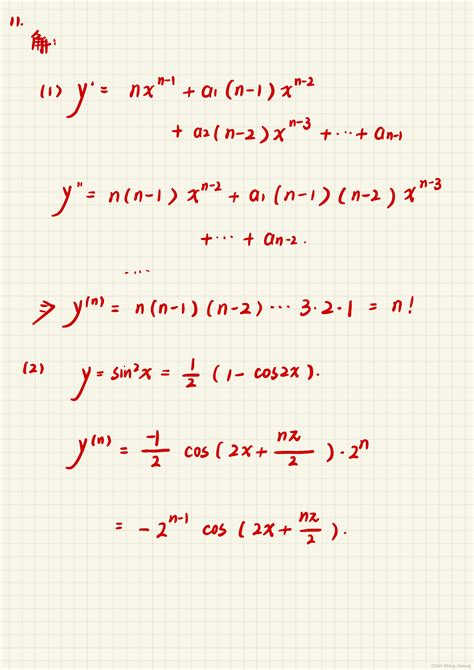 11.
解:
(1) y' = nxⁿ⁻¹ + a₁(n-1)xⁿ⁻²
+ a₂(n-2)xⁿ⁻³ + ⋯ + aₙ₋₁
y'' = n(n-1)xⁿ⁻² + a₁(n-1)(n-2)xⁿ⁻³
+ ⋯ + aₙ₋₂.
⋯
⇒ y⁽ⁿ⁾ = n(n-1)(n-2)⋯3·2·1 = n!
(2) y = sin²x = 1/2 (1 - cos2x).
y⁽ⁿ⁾ = -1/2 cos(2x + nπ/2)·2ⁿ
= -2ⁿ⁻¹ cos(2x + nπ/2).